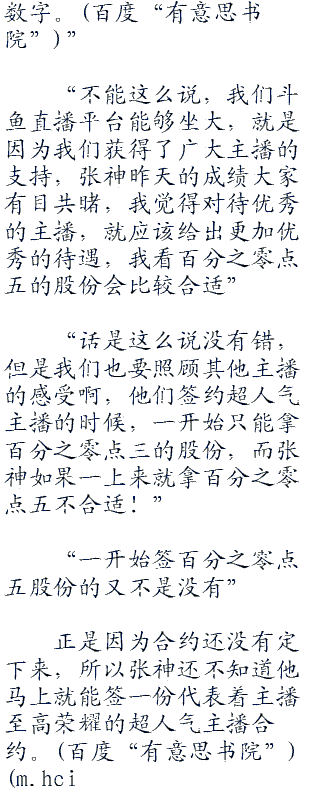 数字。(百度“有意思书
院”)”
“不能这么说，我们斗
鱼直播平台能够坐大，就是
因为我们获得了广大主播的
支持，张神昨天的成绩大家
有目共睹，我觉得对待优秀
的主播，就应该给出更加优
秀的待遇，我看百分之零点
五的股份会比较合适”
“话是这么说没有错，
但是我们也要照顾其他主播
的感受啊，他们签约超人气
主播的时候，一开始只能拿
百分之零点三的股份，而张
神如果一上来就拿百分之零
点五不合适！”
“一开始签百分之零点
五股份的又不是没有”
正是因为合约还没有定
下来，所以张神还不知道他
马上就能签一份代表着主播
至高荣耀的超人气主播合
约。(百度“有意思书院”)
(m.hci